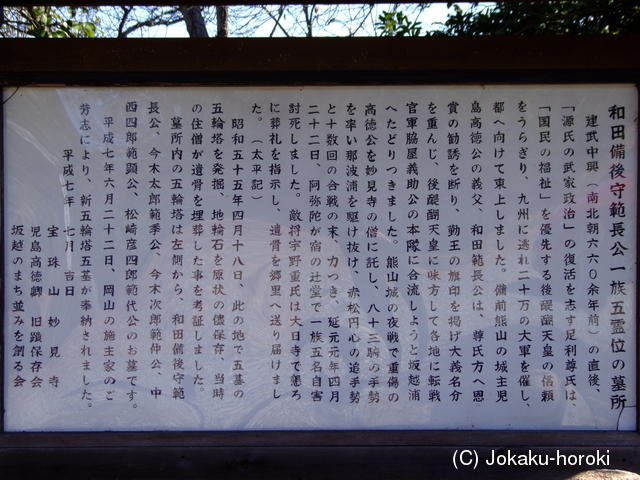 和田備後守範長公一族五霊位の墓所
建武中興（南北朝六六〇余年前）の直後、
「源氏の武家政治」の復活を志す足利尊氏は、
「国民の福祉」を優先する後醍醐天皇の信頼
をうらぎり、九州に逃れ二十万の大軍を催し、
都へ向けて東上しました。備前熊山の城主児
島高徳公の義父、和田範長公は、尊氏方へ恩
賞の勧誘を断り、勤王の旗印を掲げ大義名分
を重んじ、後醍醐天皇に味方して各地に転戦
官軍脇屋義助公の本隊に合流しようと坂越浦
へたどりつきました。熊山城の夜戦で重傷の
高徳公を妙見寺の僧に託し、八十三騎の手勢
を率い那波浦を駆け抜け、赤松円心の追手勢
と十数回の合戦の末、力つき、延元元年四月
二十二日、阿弥陀が宿の辻堂で一族五名自害
討死しました。敵将宇野重氏は大日寺で懇ろ
に葬礼を指示し、遺骨を郷里へ送り届けまし
た。（太平記）
昭和五十五年四月十八日、此の地で五基の
五輪塔を発掘、地輪石を原状の儘保存、当時
の住僧が遺骨を埋葬した事を考証しました。
墓所内の五輪塔は左側から、和田備後守範
長公、今木太郎範季公、今木次郎範仲公、中
西四郎範顕公、松崎彦四郎範代公のお墓です。
平成七年六月二十二日、岡山の施主家のご
芳志により、新五輪塔五基が奉納されました。
平成七年　七月　吉日
宝珠山妙見寺
児島高徳卿　旧蹟保存会
坂越のまち並みを創る会
(C) Jokaku-horoki